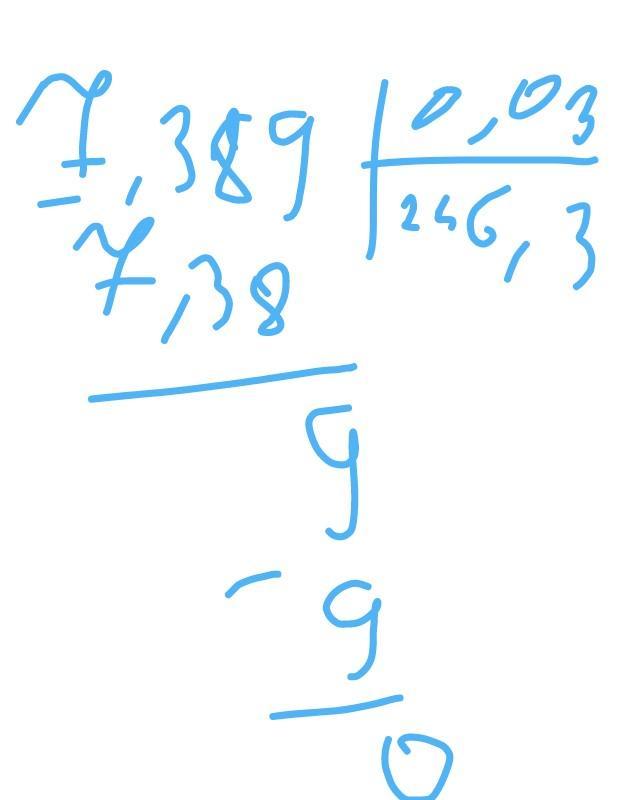 7,389 | 0,03
- 246,3
7,38
9
- 9
0